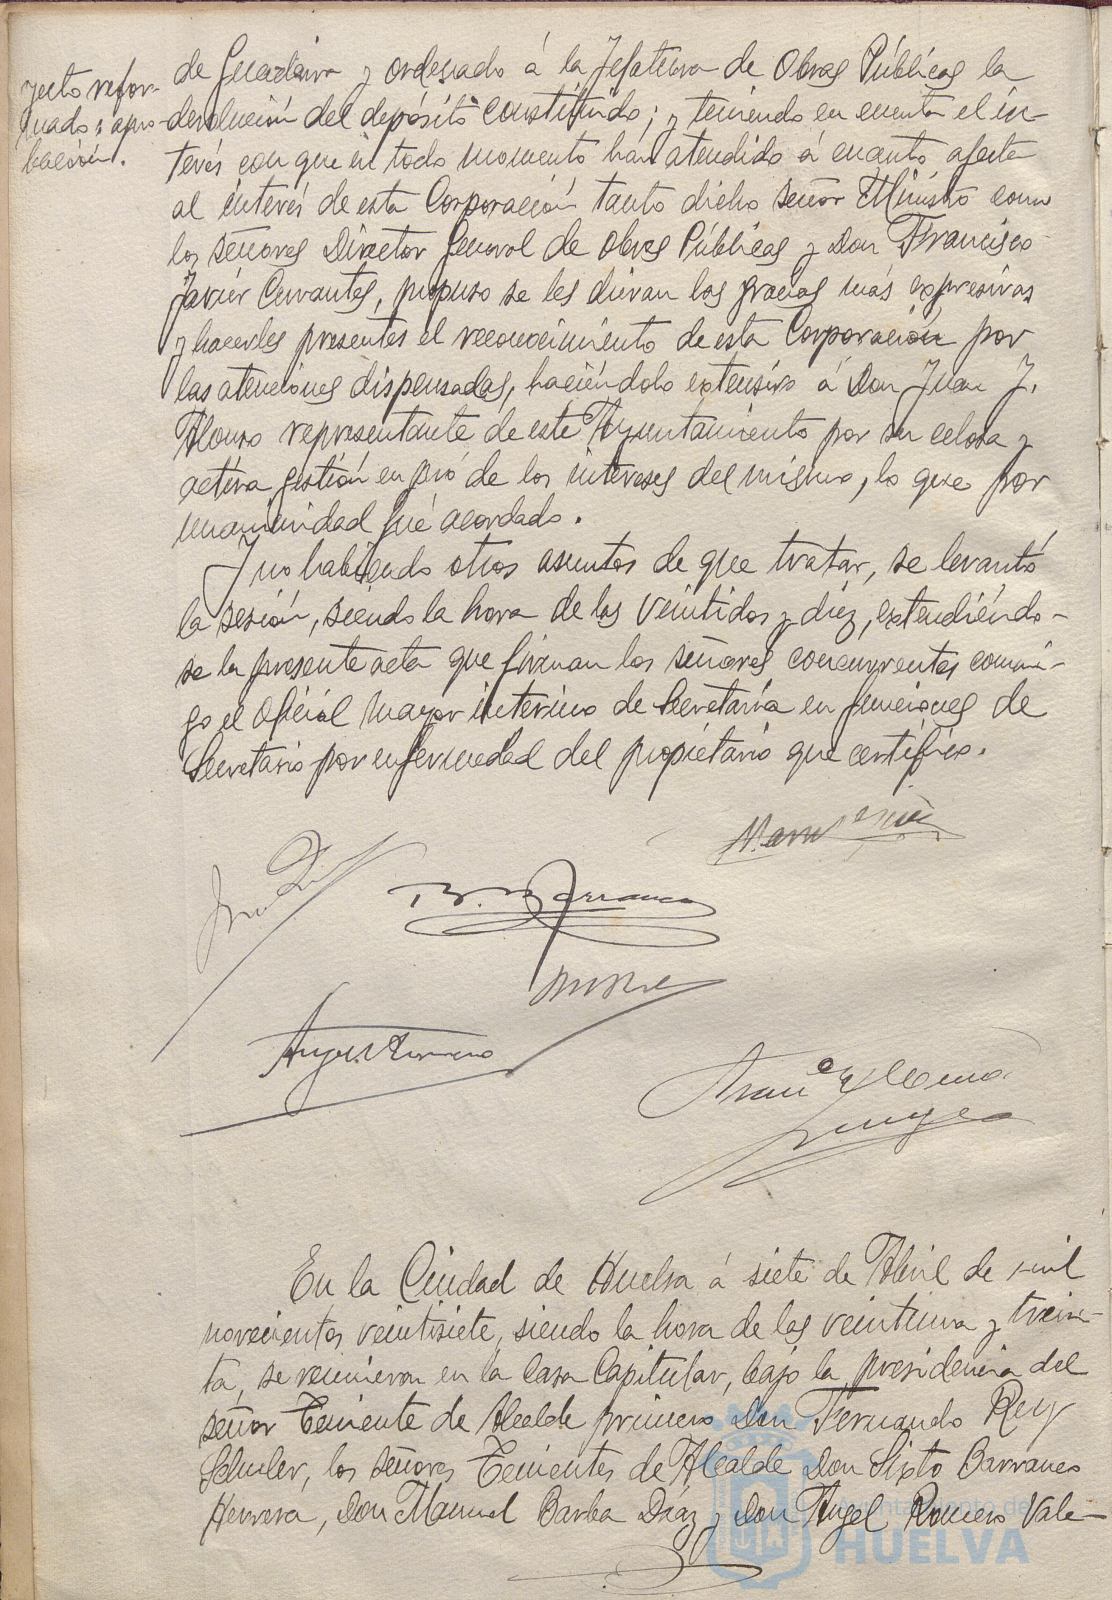 yecto refor-
mado y apro-
bación.
de Guadaira y ordenado á la Jefatura de Obras Públicas la
devolución del depósito constituido; y teniendo en cuenta el in-
terés con que en todo momento han atendido á cuanto afecta
al interés de esta Corporación tanto dicho señor Ministro como
los señores Director General de Obras Públicas y Don Francisco
Javier Cervantes, propuso se les dieran las gracias más expresivas
y hacerles presentes el reconocimiento de esta Corporación por
las atenciones dispensadas, haciéndolo extensivo á Don Juan J.
Alonso representante de este Ayuntamiento por su celosa y
activa gestión en pró de los intereses del mismo, lo que por
unanimidad fué acordado.
Y no habiendo otros asuntos de que tratar, se levantó
la sesión, siendo la hora de las veintidos y diez, extendiéndo-
se la presente acta que firman los señores concurrentes conmi-
go el Oficial mayor interino de Secretaría en funciones de
Secretario por enfermedad del propietario que certifico.
Barranco
Angel Romero
En la Ciudad de Huelva á siete de Abril de mil
novecientos veintisiete, siendo la hora de las veintiuna y trein-
ta, se reunieron en la Casa Capitular, bajo la presidencia del
señor Teniente de Alcalde primero Don Fernando Rey
Schuler, los señores Tenientes de Alcalde Don Sixto Barranco
Herrera, Don Manuel Barba Díaz y Don Angel Romero Vale-
Ayuntamiento de
HUELVA